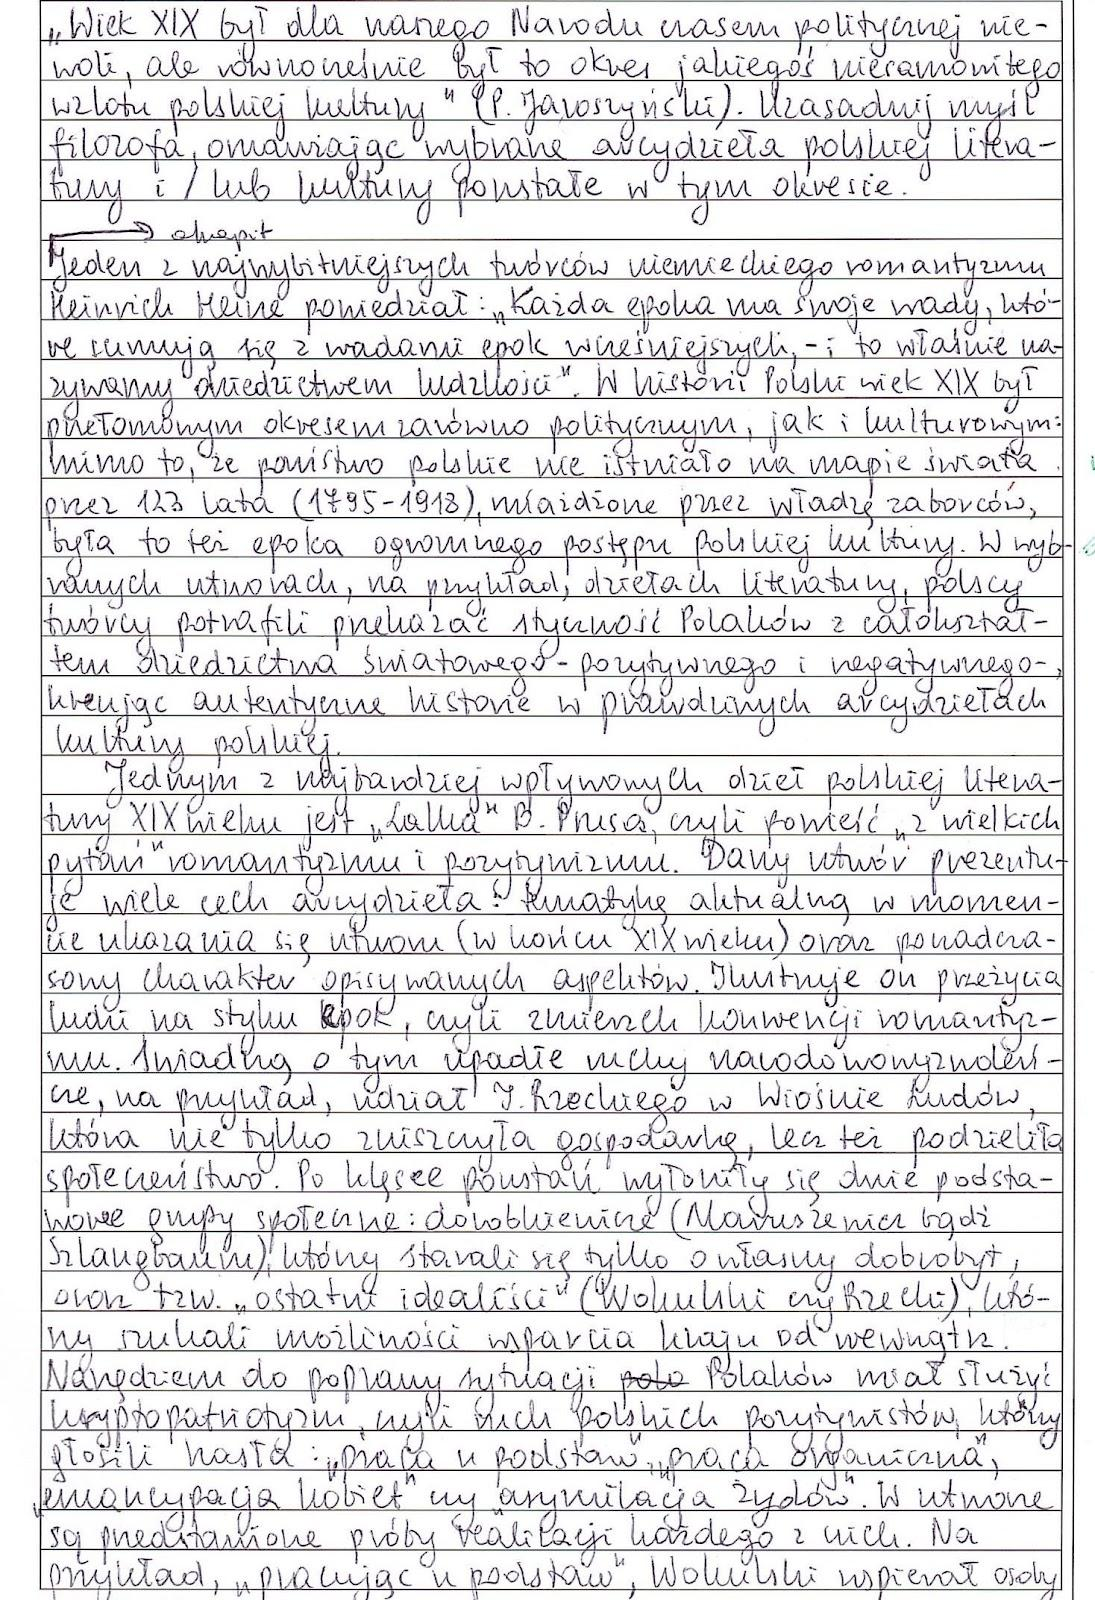 „Wiek XIX był dla naszego Narodu czasem politycznej nie-
woli, ale równocześnie był to okres jakiegoś niesamowitego
wzlotu polskiej kultury" (P. Jaroszyński). Uzasadnij myśl
filozofa, omawiając wybrane arcydzieła polskiej litera-
tury i / lub kultury powstałe w tym okresie.
akapit
Jeden z najwybitniejszych twórców niemieckiego romantyzmu
Heinrich Heine powiedział: „Każda epoka ma swoje wady, któ-
re sumują się z wadami epok wcześniejszych, - i to właśnie na-
zywamy dziedzictwem ludzkości". W historii Polski wiek XIX był
przełomowym okresem zarówno politycznym, jak i kulturowym:
mimo to, że państwo polskie nie istniało na mapie świata
przez 123 lata (1795-1918), miażdżone przez władzę zaborców,
była to też epoka ogromnego postępu polskiej kultury. W wyb-
ranych utworach, na przykład, dziełach literatury, polscy
twórcy potrafili przekazać styczność Polaków z całokształ-
tem dziedzictwa światowego - pozytywnego i negatywnego-,
kreując autentyczne historie w prawdziwych arcydziełach
kultury polskiej.
Jednym z najbardziej wpływowych dzieł polskiej litera-
tury XIX wieku jest „Lalka" B. Prusa, czyli powieść „z wielkich
pytań" romantyzmu i pozytywizmu. Dany utwór prezentu-
je wiele cech arcydzieła: tematykę aktualną w momen-
cie ukazania się utworu (w końcu XIX wieku) oraz ponadcza-
sowy charakter opisywanych aspektów. Ilustruje on przeżycia
ludzi na styku epok, czyli zmierzch konwencji romantyz-
mu. Świadczą o tym upadłe ruchy narodowowyzwoleń-
cze, na przykład, udział I. Rzeckiego w Wiośnie Ludów,
która nie tylko zniszczyła gospodarkę, lecz też podzieliła
społeczeństwo. Po klęsce powstań wyłoniły się dwie podsta-
wowe grupy społeczne: dorobkiewicze (Maruszewicz bądź
Szlangbaum), którzy starali się tylko o własny dobrobyt,
oraz tzw. „ostatni idealiści" (Wokulski czy Rzecki), któ-
rzy szukali możliwości wsparcia kraju od wewnątrz.
Narzędziem do poprawy sytuacji Polaków miał służyć
kryptopatriotyzm, czyli ruch polskich pozytywistów, którzy
głosili hasła: „praca u podstaw", „praca organiczna",
„emancypacja kobiet" czy „asymilacja Żydów". W utworze
są przedstawione próby realizacji każdego z nich. Na
przykład, „pracując u podstaw", Wokulski wspierał osoby